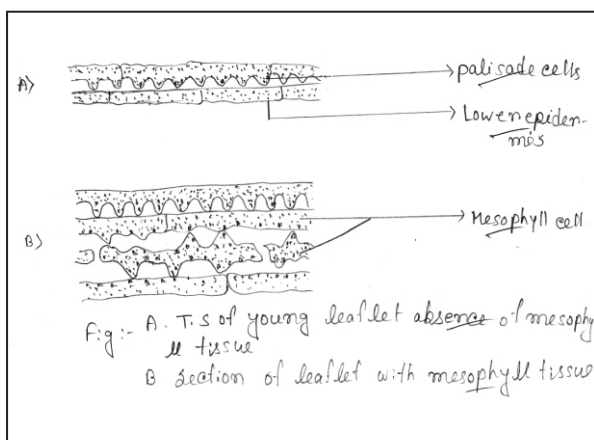 A>
palisade cells
Lowerepider-
mis
B>
Mesophyll cell
Fig:- A. T.S of young leaflet absence of mesophy
ll tissue
B section of leaflet with mesophyll tissue